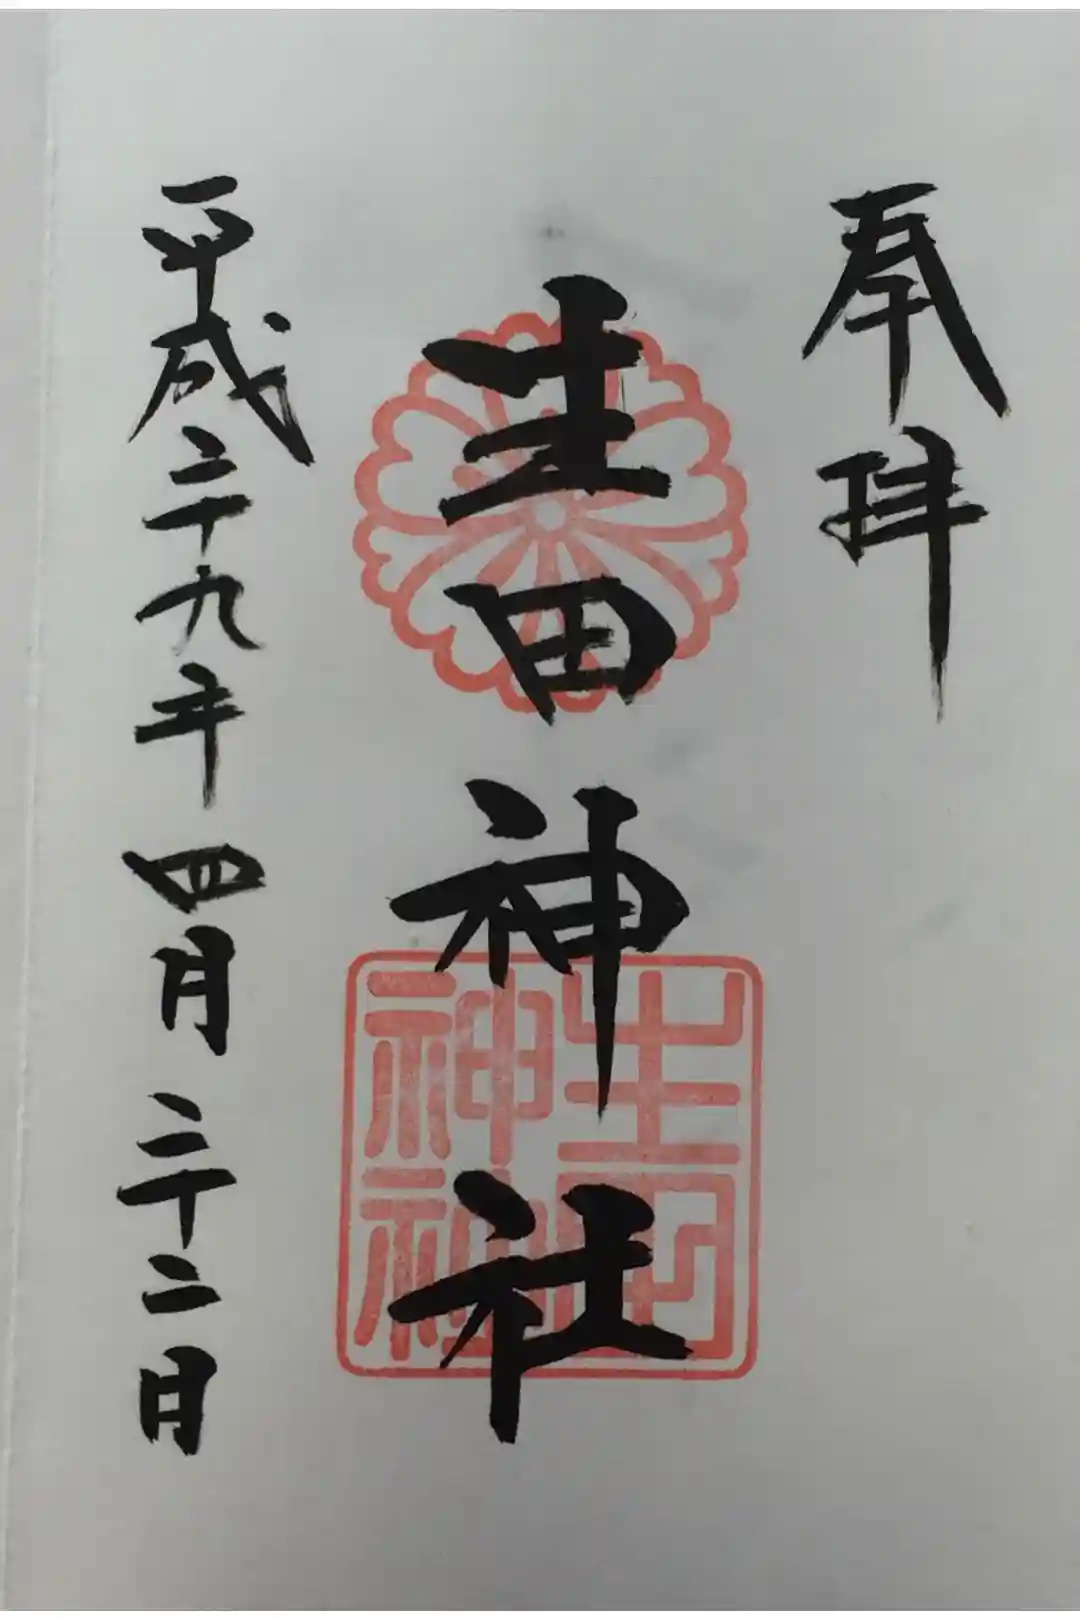 奉拝
生田神社
生田
神社
平成二十九年四月二十二日